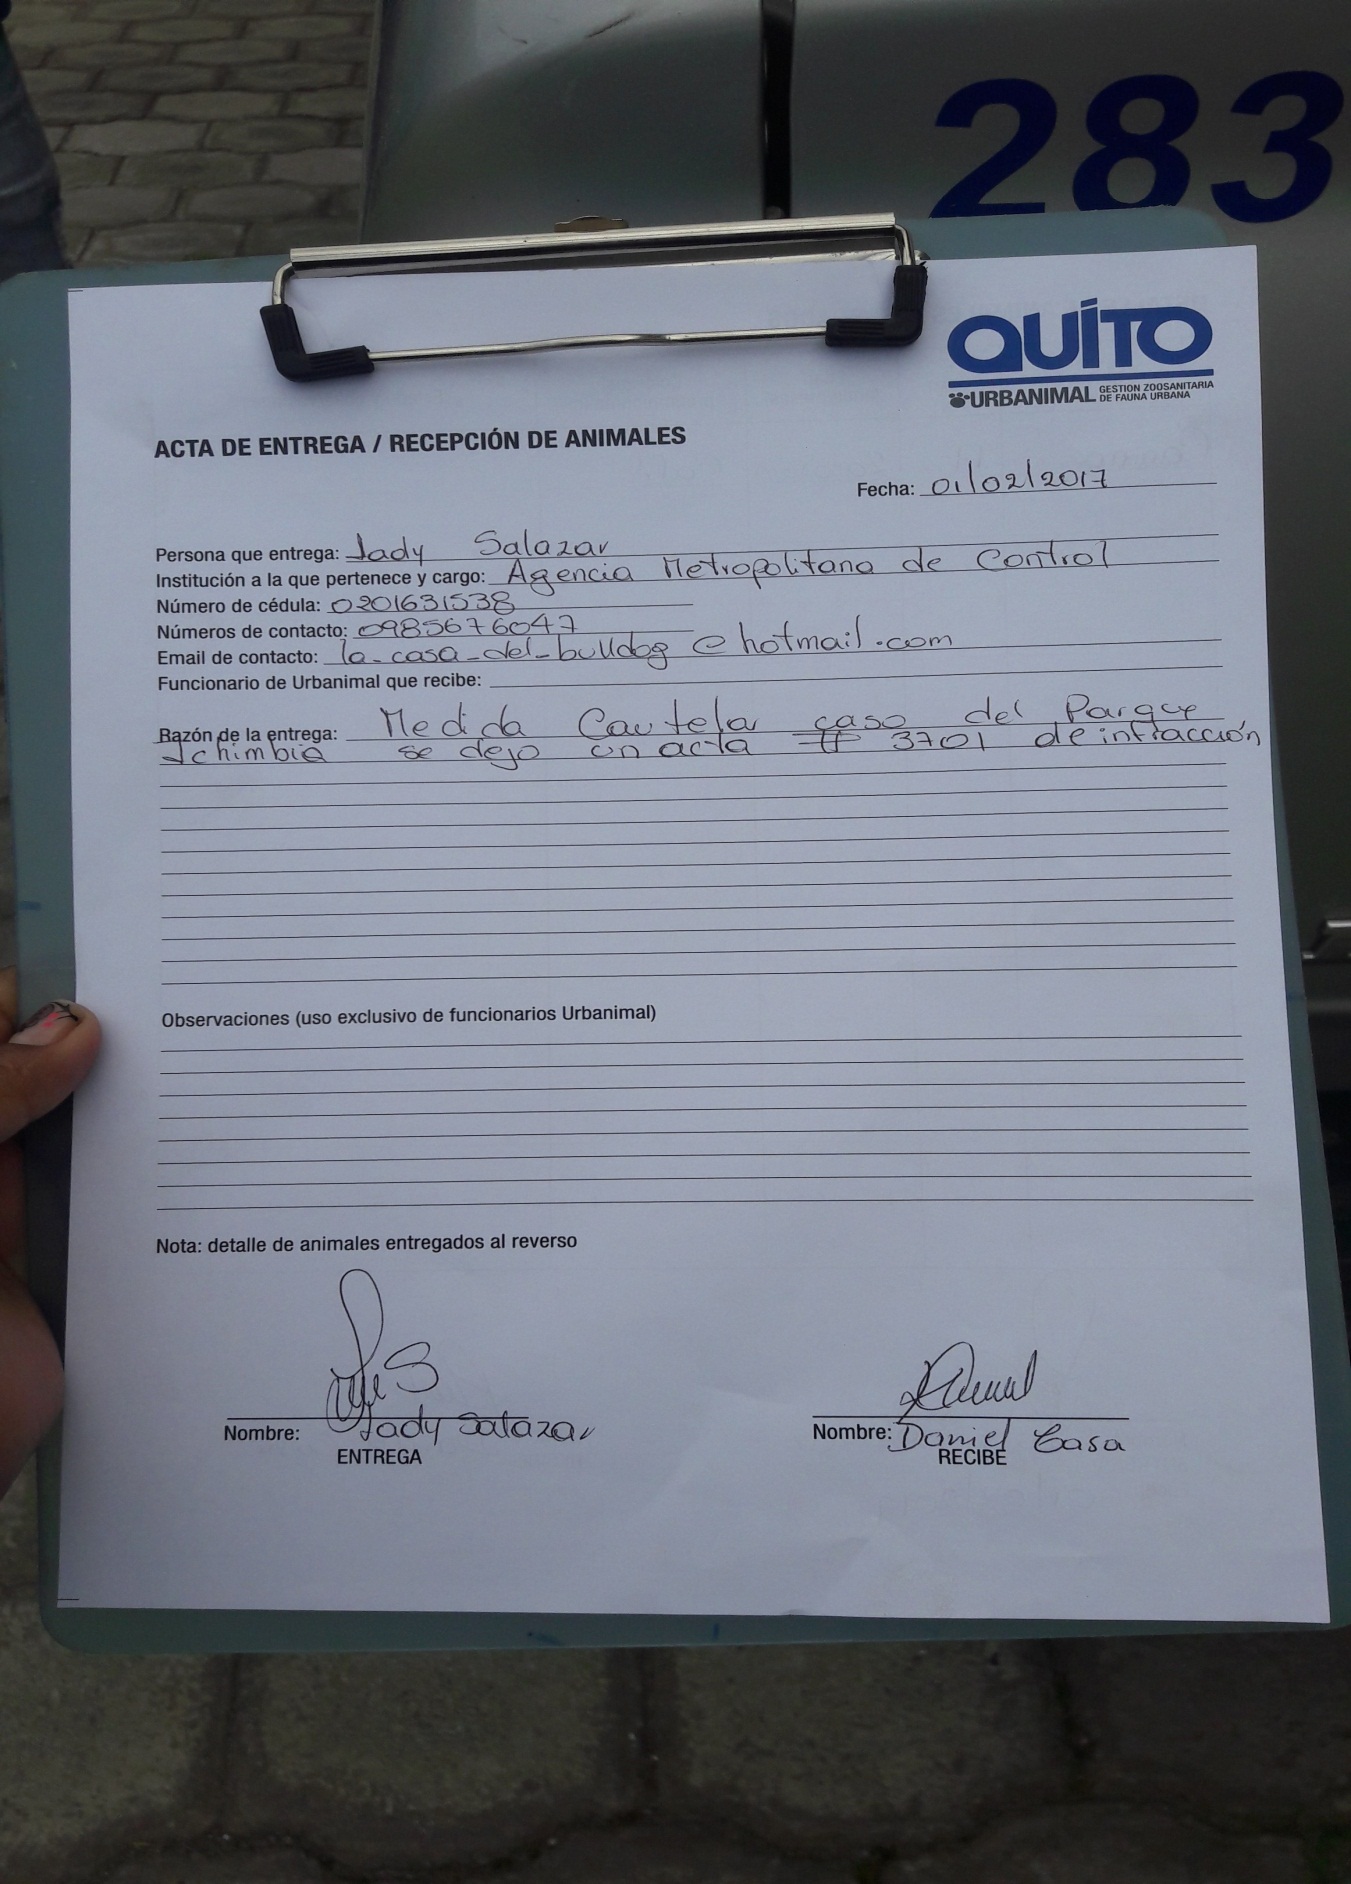 283
QUITO
URBANIMAL GESTION ZOOSANITARIA DE FAUNA URBANA
ACTA DE ENTREGA / RECEPCIÓN DE ANIMALES
Fecha: 01/02/2017
Persona que entrega: Jady Salazar
Institución a la que pertenece y cargo: Agencia Metropolitana de Control
Número de cédula: 0201631538
Números de contacto: 0985676047
Email de contacto: la_casa_del_bulldog @ hotmail.com
Funcionario de Urbanimal que recibe:
Razón de la entrega: Medida Cautelar caso del Parque
Ichimbia se dejo un acta # 3701 de infracción
Observaciones (uso exclusivo de funcionarios Urbanimal)
Nota: detalle de animales entregados al reverso
Nombre: Jady Salazar
ENTREGA
Nombre: Daniel Casa
RECIBE